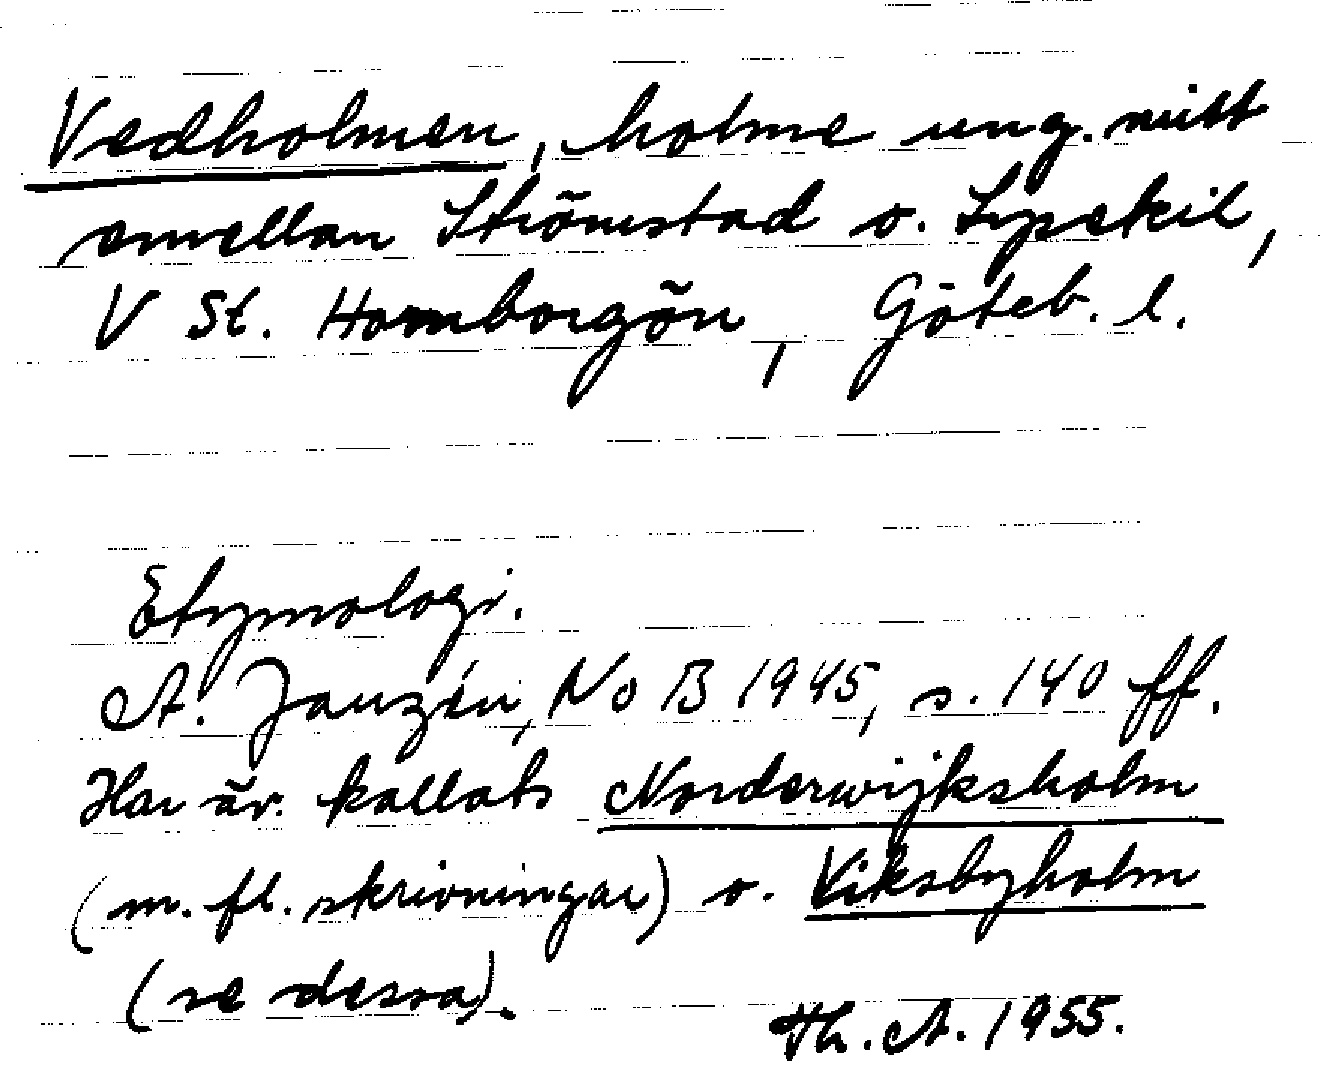 Vedholmen, holme ung. mitt
emellan Strömstad o. Lysekil,
V St. Hornborgön, Göteb. l.
Etymologi.
A. Janzén, NoB 1945, s. 140 ff.
Har äv. kallats Norderwijksholm
(m. fl. skrivningar) o. Viksbyholm
(se dessa).
Th. A. 1955.